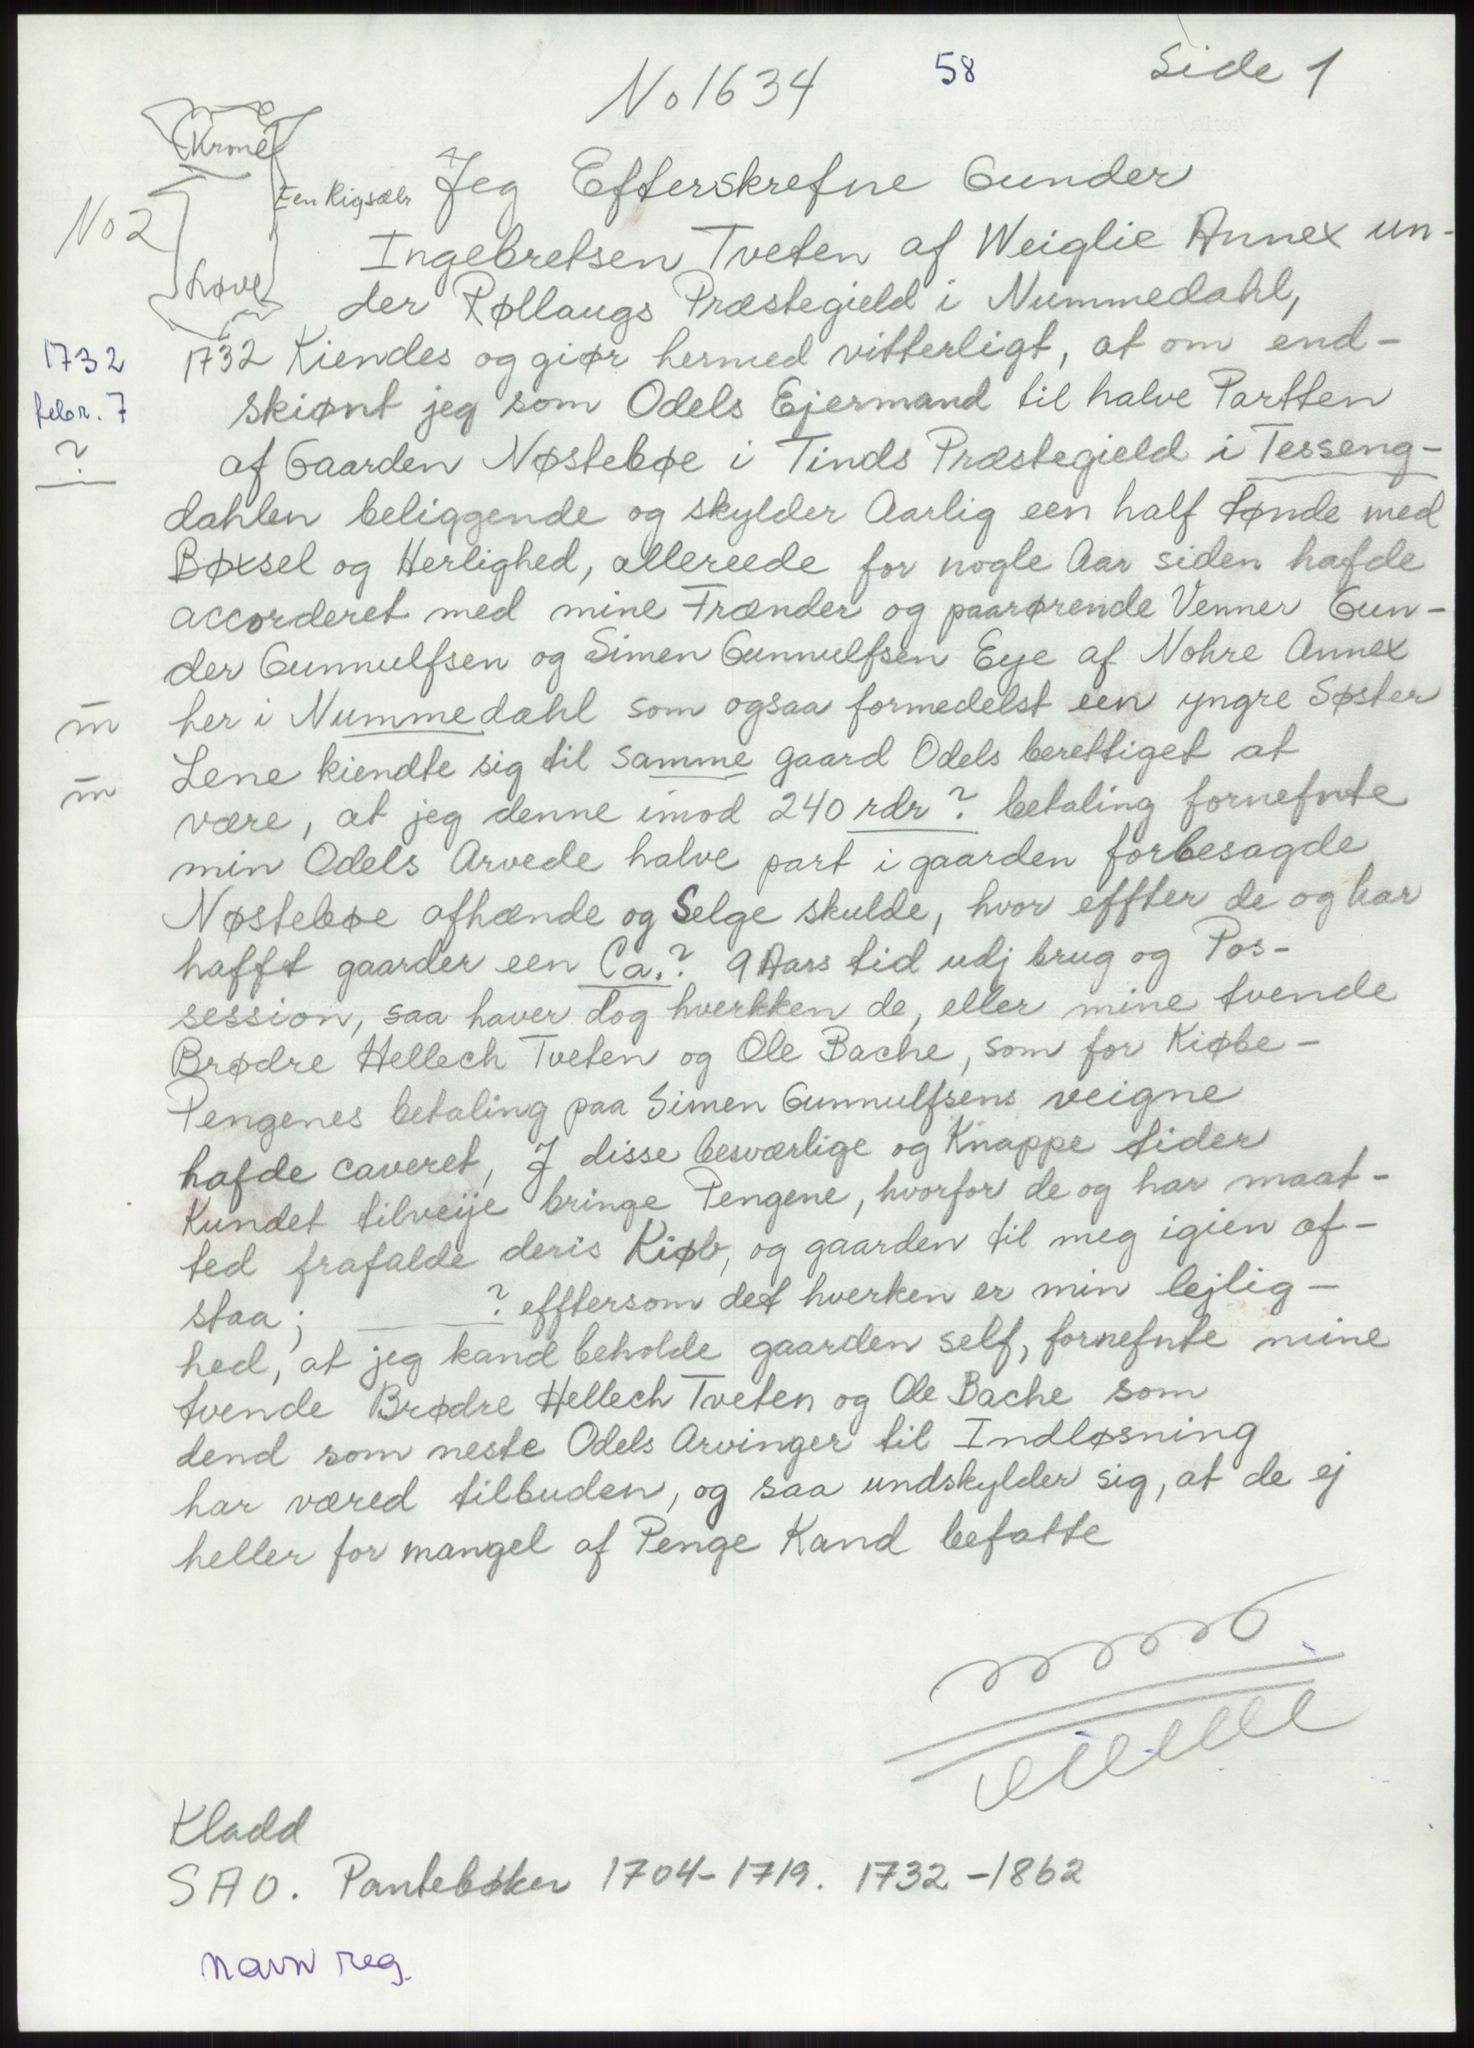 No 1634
58
Side 1
Krone
Een Rigsdlr
No 2
Løve
Jeg Efterskrefne Gunder
Ingebretsen Tveten af Weiglie Annex un-
der Røllaugs Præstegield i Nummedahl,
1732
febr. 7
?
1732 Kiendes og giør hermed vitterligt, at om end-
skiønt jeg som Odels Ejermand til halve Partten
af Gaarden Nøstebøe i Tinds Præstegield i Tesseng-
dahlen beliggende og skylder Aarlig een half tønde med
Bøxsel og Herlighed, allereede for nogle Aar siden hafde
accorderet med mine Frænder og paarørende Venner Gun-
der Gunnulfsen og Simen Gunnulfsen Eye af Nohre Annex
m̄ her i Nummedahl som ogsaa formedelst een yngre Søster
Lene kiendte sig til samme gaard Odels berettiget at
m̄
være, at jeg denne imod 240 rdr ? betaling fornefnte
min Odels Arvede halve part i gaarden forbesagde
Nøstebøe afhænde og Selge skulde, hvor effter de og har
hafft gaarder een Ca. ? 9 Aars tid udj brug og Pos-
session, saa haver dog hverkken de, eller mine tvende
Brødre Hellech Tveten og Ole Bache, som for Kiøbe-
Pengenes betaling paa Simen Gunnulfsens veigne
hafde caveret, J disse besværlige og Knappe tider
Kundet tilveije bringe Pengene, hvorfor de og har maat-
ted frafalde deris Kiøb, og gaarden til meg igien af-
staa; ______ ? efftersom det hverken er min lejlig-
hed, at jeg kand beholde gaarden self, fornefnte mine
tvende Brødre Hellech Tveten og Ole Bache som
dend som neste Odels Arvinger til Indløsning
har væred tilbuden, og saa undskylder sig, at de ej
heller for mangel af Penge Kand befatte
Kladd
SAO. Pantebøker 1704-1719. 1732-1862
Navn reg.